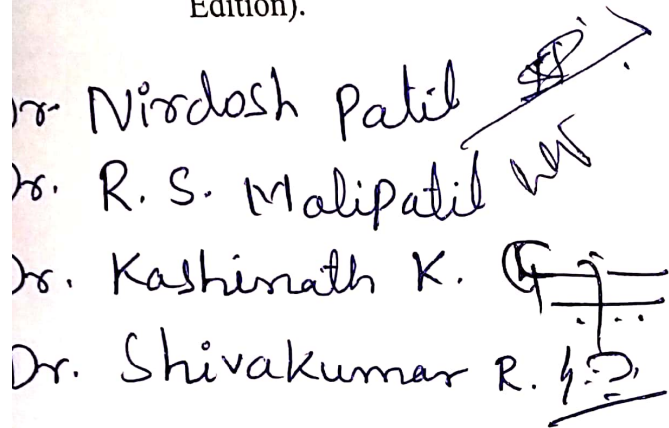 Edition).
Dr. Nirdosh Patil
Dr. R. S. Malipatil
Dr. Kashinath K.
Dr. Shivakumar R.